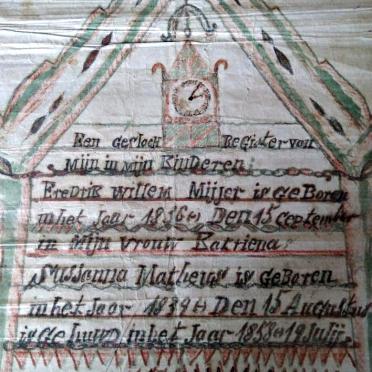 Een geslach Register van
Mijn in mijn Kinderen
Fredrik Willem Mijser is geBoren
in het Jaar 1836 Den 15 September
in Mijn vrouw Katriena
Sussanna Matheus is geBoren
in het Jaar 1839 Den 15 Augustus
is ge huwd in het Jaar 1858 19 Julij